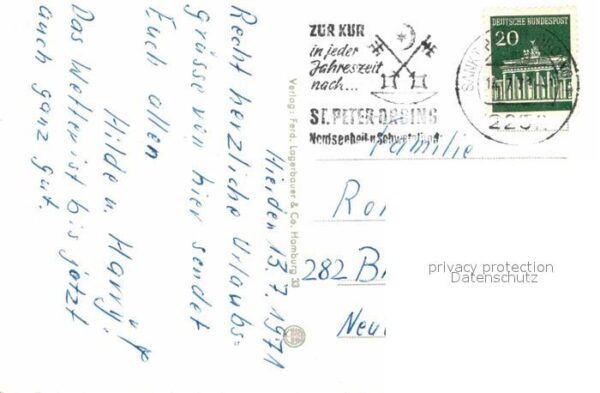 Hierden 13.7.1971
Recht herzliche Urlaubs=
grüsse von hier sendet
Euch allen
Hilde u. Harry.
Das Wetter ist bis jetzt
auch ganz gut.
Verlag: Ferd. Lagerbauer & Co. Hamburg 33
ZUR KUR
in jeder
Jahreszeit
nach...
ST. PETER-ORDING
Nordseeheil- u Schwefelbad
DEUTSCHE BUNDESPOST
20
SANKT
2252
Familie
Ro
282 B
Neu
privacy protection
Datenschutz